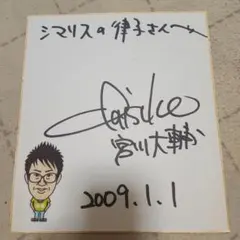 シマリスの律子さんへ
Daisuke
宮川大輔
2009.1.1